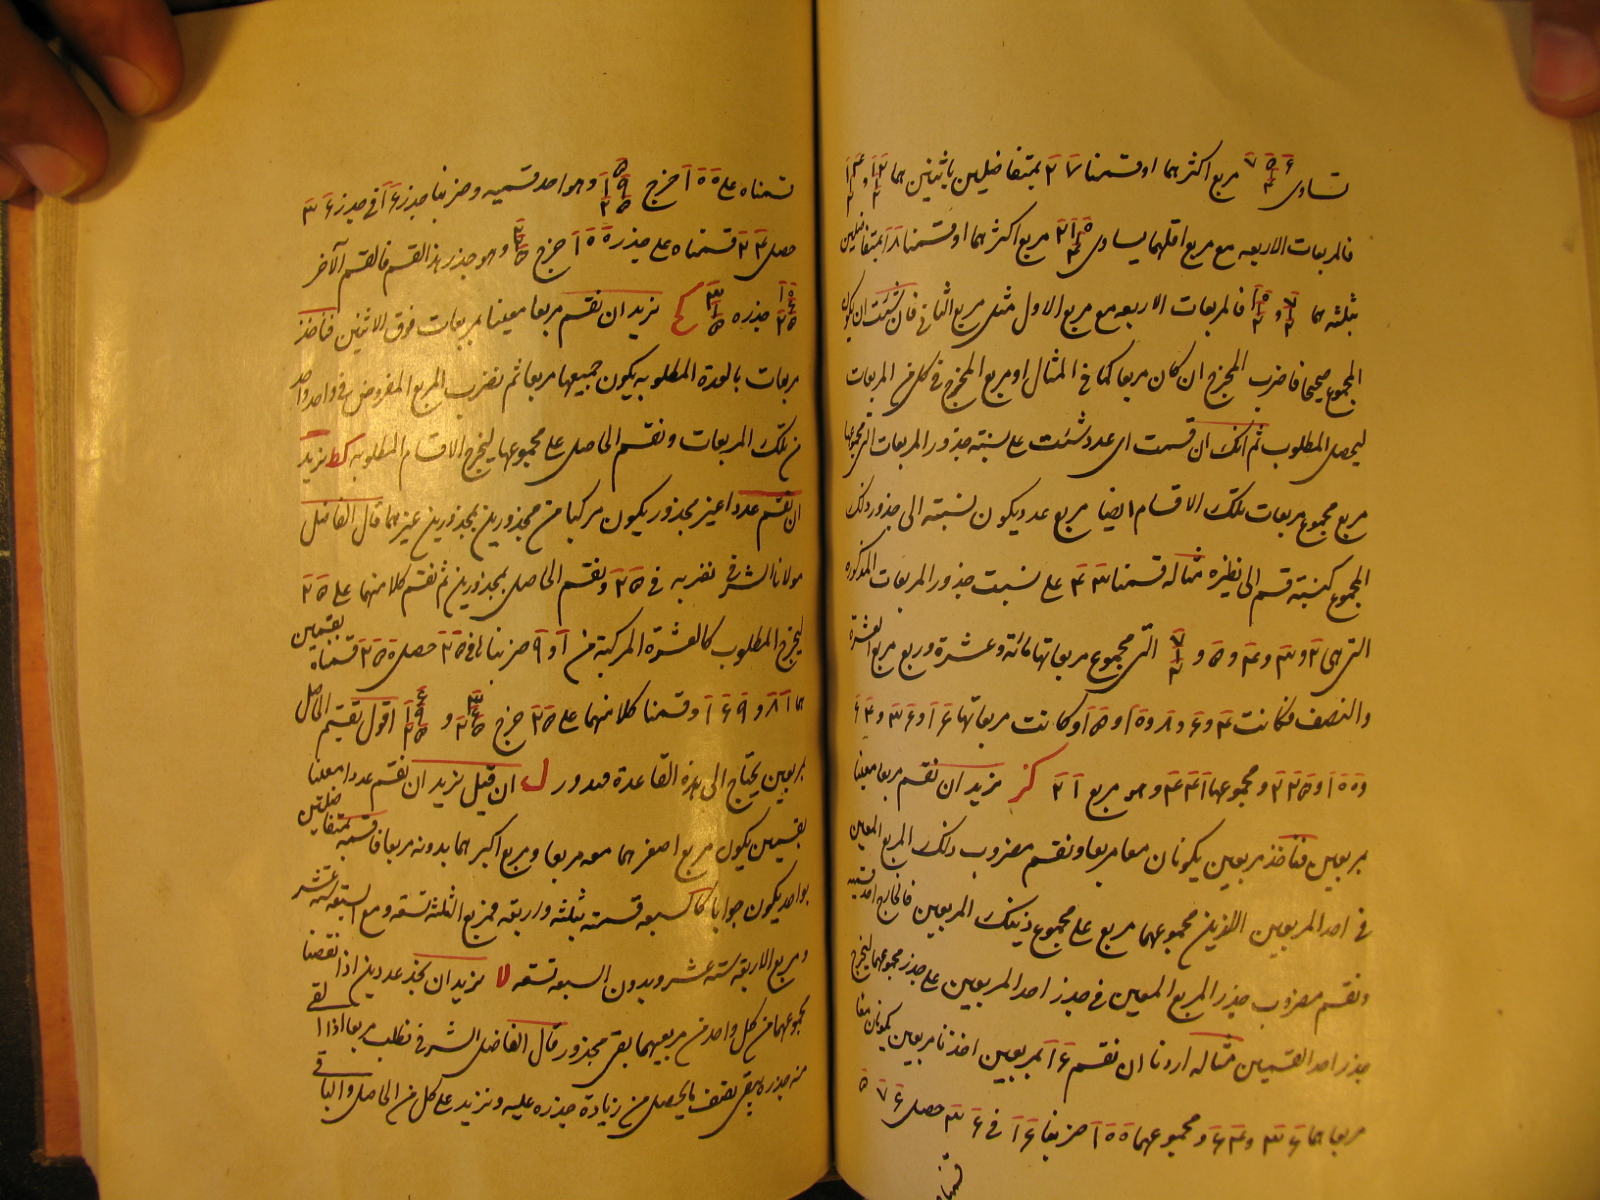 تساوى مربع اكثرهما او قسمنا ۲۷ بمتفاضلين باثنين هما
فالمربعات الاربعه مع مربع اقلهما يساوى مربع اكثرهما او قسمنا ۱۸ بمتفاضلين
بثلثه هما و فالمربعات الاربعه مع مربع الاول مثل مربع الثانى فان شئت ان يكون
المجموع صحيحا فاضرب المخرج ان كان مربعا كما فى المثال او مربع المخرج فى كل من المربعات
ليحصل المطلوب ثم انك ان قسمت اى عدد شئت على نسبة جذور المربعات التى مجموعها
مربع مجموع مربعات تلك الاقسام ايضا مربع عدد يكون نسبته الى جذور ذلك
المجموع كنسبة قسم الى نظيره مثاله قسمنا ۴۳ على نسبت جذور المربعات المذكوره
التى هى ۲ و ۳ و ۴ و ۵ و التى مجموع مربعاتها مائة وعشرة وربع مربع العشرة
والنصف فكانت ۴ و ۶ و ۸ و ۱۰ و ۱۵ وكانت مربعاتها ۱۶ و ۳۶ و ۶۴
و ۱۰۰ و ۲۲۵ ومجموعها ۴۴۱ وهو مربع ۲۱ كز نريد ان نقسم مربعا معينا
بمربعين فنأخذ مربعين يكونان معا مربعا ونقسم مضروب ذلك المربع المعين
فى احد المربعين اللذين مجموعهما مربع على مجموع ذينك المربعين فالخارج احد قسميه
ونقسم مضروب جذر المربع المعين فى جذر احد المربعين على جذر مجموعهما ليخرج
جذر احد القسمين مثاله اردنا ان نقسم ۱۶ بمربعين اخذنا مربعين يكونان معا
مربعا هما ۳۶ و ۶۴ ومجموعهما ۱۰۰ ضربنا ۱۶ فى ۳۶ حصل ۵۷۶
قسمناه
قسمناه على ۱۰۰ خرج وهو احد قسميه وضربنا جذر ۱۶ فى جذر ۳۶
حصل ۲۴ قسمناه على جذر ۱۰۰ خرج وهو جذر هذا القسم فالقسم الآخر
جذره كح نريد ان نقسم مربعا معينا بمربعات فوق الاثنين فنأخذ
مربعات بالعدة المطلوبه يكون جميعها مربعا ثم نضرب المربع المفروض فى واحد واحد
من تلك المربعات ونقسم الحاصل على مجموعها ليخرج الاقسام المطلوبه كط نريد
ان نقسم عددا غير مجذور يكون مركبا من مجذورين بمجذورين غيرهما قال الفاضل
مولانا الشرفى نضربه فى ۲۵ ونقسم الحاصل بمجذورين ثم نقسم كلا منهما على ۲۵
ليخرج المطلوب كالعشرة المركبة من ۱ و ۹ ضربناها فى ۲۵ حصل ۲۵۰ قسمناه بقسمين
هما ۸۱ و ۱۶۹ وقسمنا كلا منهما على ۲۵ خرج و اقول تقسيم الحاصل
بمربعين يحتاج الى هذه القاعدة فيدور ل ان قيل نريد ان نقسم عددا معينا
بقسمين يكون مربع اصغرهما معه مربعا ومربع اكبرهما بدونه مربعا فاقسمه بمتفاضلين
بواحد يكون جوابا كما كسبعه قسمت بثلثه واربعه فمربع الثلثه تسعه ومع السبعه سته عشر
ومربع الاربعه سته عشر وبدون السبعه تسعه لا نريد ان نجد عددين اذا نقصنا
مجموعهما من كل واحد من مربعيهما بقى مجذور قال الفاضل الشرفى نطلب مربعا اذا القى
منه جذره يبقى نصف ما يحصل من زيادة جذره عليه ونزيد على كل من الحاصل والباقى